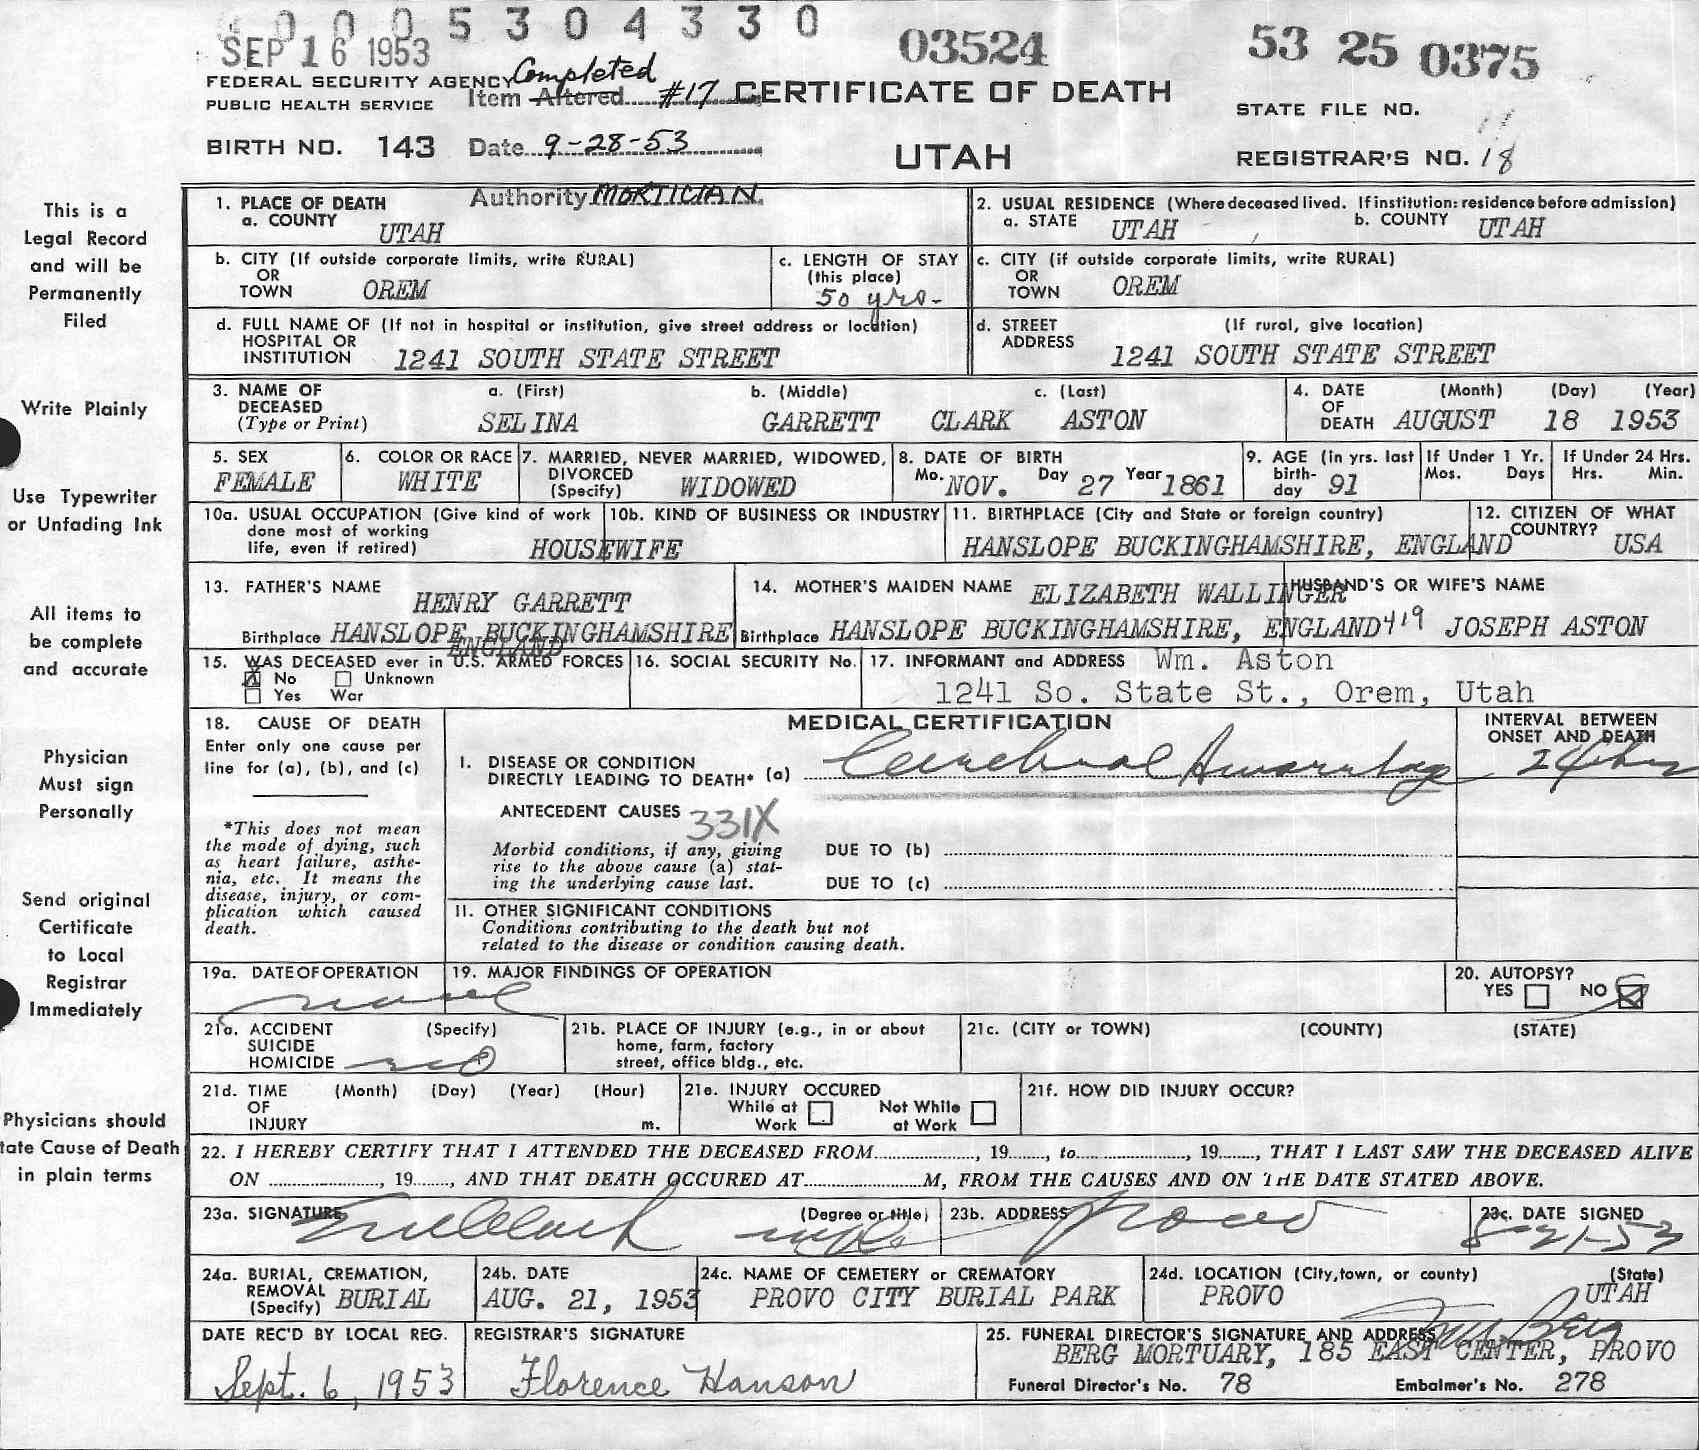 0005304330
SEP 16 1953
03524
53 25 0375
FEDERAL SECURITY AGENCY
PUBLIC HEALTH SERVICE
Completed
Item Altered #17
CERTIFICATE OF DEATH
STATE FILE NO.
BIRTH NO. 143
Date 9-28-53
UTAH
REGISTRAR'S NO. 18
Authority MORTICIAN.
This is a
Legal Record
and will be
Permanently
Filed
Write Plainly
Use Typewriter
or Unfading Ink
All items to
be complete
and accurate
Physician
Must sign
Personally
Send original
Certificate
to Local
Registrar
Immediately
Physicians should
tate Cause of Death
in plain terms
1. PLACE OF DEATH
a. COUNTY
UTAH
2. USUAL RESIDENCE (Where deceased lived. If institution: residence before admission)
a. STATE UTAH b. COUNTY UTAH
b. CITY (If outside corporate limits, write RURAL)
OR
TOWN OREM
c. LENGTH OF STAY
(this place)
50 yrs-
c. CITY (if outside corporate limits, write RURAL)
OR
TOWN OREM
d. FULL NAME OF (If not in hospital or institution, give street address or location)
HOSPITAL OR
INSTITUTION 1241 SOUTH STATE STREET
d. STREET (If rural, give location)
ADDRESS 1241 SOUTH STATE STREET
3. NAME OF a. (First) b. (Middle) c. (Last)
DECEASED
(Type or Print) SELINA GARRETT CLARK ASTON
4. DATE (Month) (Day) (Year)
OF
DEATH AUGUST 18 1953
5. SEX
FEMALE
6. COLOR OR RACE
WHITE
7. MARRIED, NEVER MARRIED, WIDOWED,
DIVORCED
(Specify) WIDOWED
8. DATE OF BIRTH
Mo. NOV. Day 27 Year 1861
9. AGE (in yrs. last
birth-
day 91
If Under 1 Yr.
Mos. Days
If Under 24 Hrs.
Hrs. Min.
10a. USUAL OCCUPATION (Give kind of work
done most of working
life, even if retired) HOUSEWIFE
10b. KIND OF BUSINESS OR INDUSTRY
11. BIRTHPLACE (City and State or foreign country)
HANSLOPE BUCKINGHAMSHIRE, ENGLAND
12. CITIZEN OF WHAT
COUNTRY? USA
13. FATHER'S NAME
HENRY GARRETT
Birthplace HANSLOPE BUCKINGHAMSHIRE
ENGLAND
14. MOTHER'S MAIDEN NAME ELIZABETH WALLINGER
Birthplace HANSLOPE BUCKINGHAMSHIRE, ENGLAND
HUSBAND'S OR WIFE'S NAME
419 JOSEPH ASTON
15. WAS DECEASED ever in U.S. ARMED FORCES
X No Unknown
Yes War
16. SOCIAL SECURITY No.
17. INFORMANT and ADDRESS Wm. Aston
1241 So. State St., Orem, Utah
18. CAUSE OF DEATH
Enter only one cause per
line for (a), (b), and (c)
*This does not mean
the mode of dying, such
as heart failure, asthe-
nia, etc. It means the
disease, injury, or com-
plication which caused
death.
MEDICAL CERTIFICATION
INTERVAL BETWEEN
ONSET AND DEATH
I. DISEASE OR CONDITION
DIRECTLY LEADING TO DEATH* (a) Cerebral 24 hrs
ANTECEDENT CAUSES 331X
Morbid conditions, if any, giving
rise to the above cause (a) stat-
ing the underlying cause last.
DUE TO (b)
DUE TO (c)
II. OTHER SIGNIFICANT CONDITIONS
Conditions contributing to the death but not
related to the disease or condition causing death.
19a. DATE OF OPERATION
none
19. MAJOR FINDINGS OF OPERATION
20. AUTOPSY?
YES NO
21a. ACCIDENT (Specify)
SUICIDE
HOMICIDE no
21b. PLACE OF INJURY (e.g., in or about
home, farm, factory
street, office bldg., etc.
21c. (CITY or TOWN) (COUNTY) (STATE)
21d. TIME (Month) (Day) (Year) (Hour)
OF
INJURY m.
21e. INJURY OCCURED
While at Not While
Work at Work
21f. HOW DID INJURY OCCUR?
22. I HEREBY CERTIFY THAT I ATTENDED THE DECEASED FROM, 19, to, 19, THAT I LAST SAW THE DECEASED ALIVE
ON, 19, AND THAT DEATH OCCURED AT M, FROM THE CAUSES AND ON THE DATE STATED ABOVE.
23a. SIGNATURE (Degree or title)
23b. ADDRESS Provo
23c. DATE SIGNED
8-21-53
24a. BURIAL, CREMATION,
REMOVAL
(Specify) BURIAL
24b. DATE
AUG. 21, 1953
24c. NAME OF CEMETERY or CREMATORY
PROVO CITY BURIAL PARK
24d. LOCATION (City, town, or county) (State)
PROVO UTAH
DATE REC'D BY LOCAL REG.
Sept. 6, 1953
REGISTRAR'S SIGNATURE
Florence Hanson
25. FUNERAL DIRECTOR'S SIGNATURE AND ADDRESS
Berg
BERG MORTUARY, 185 EAST CENTER, PROVO
Funeral Director's No. 78 Embalmer's No. 278